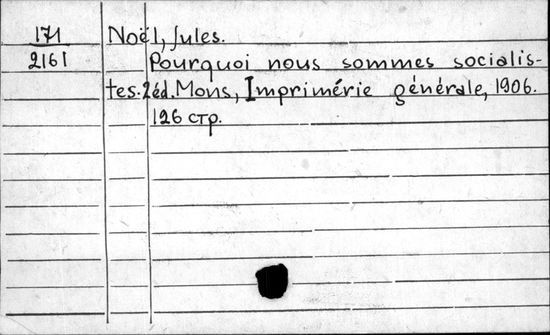 171
2161
Noël, Jules.
Pourquoi nous sommes socialis-
tes. 2 éd. Mons, Imprimérie générale, 1906.
126 стр.